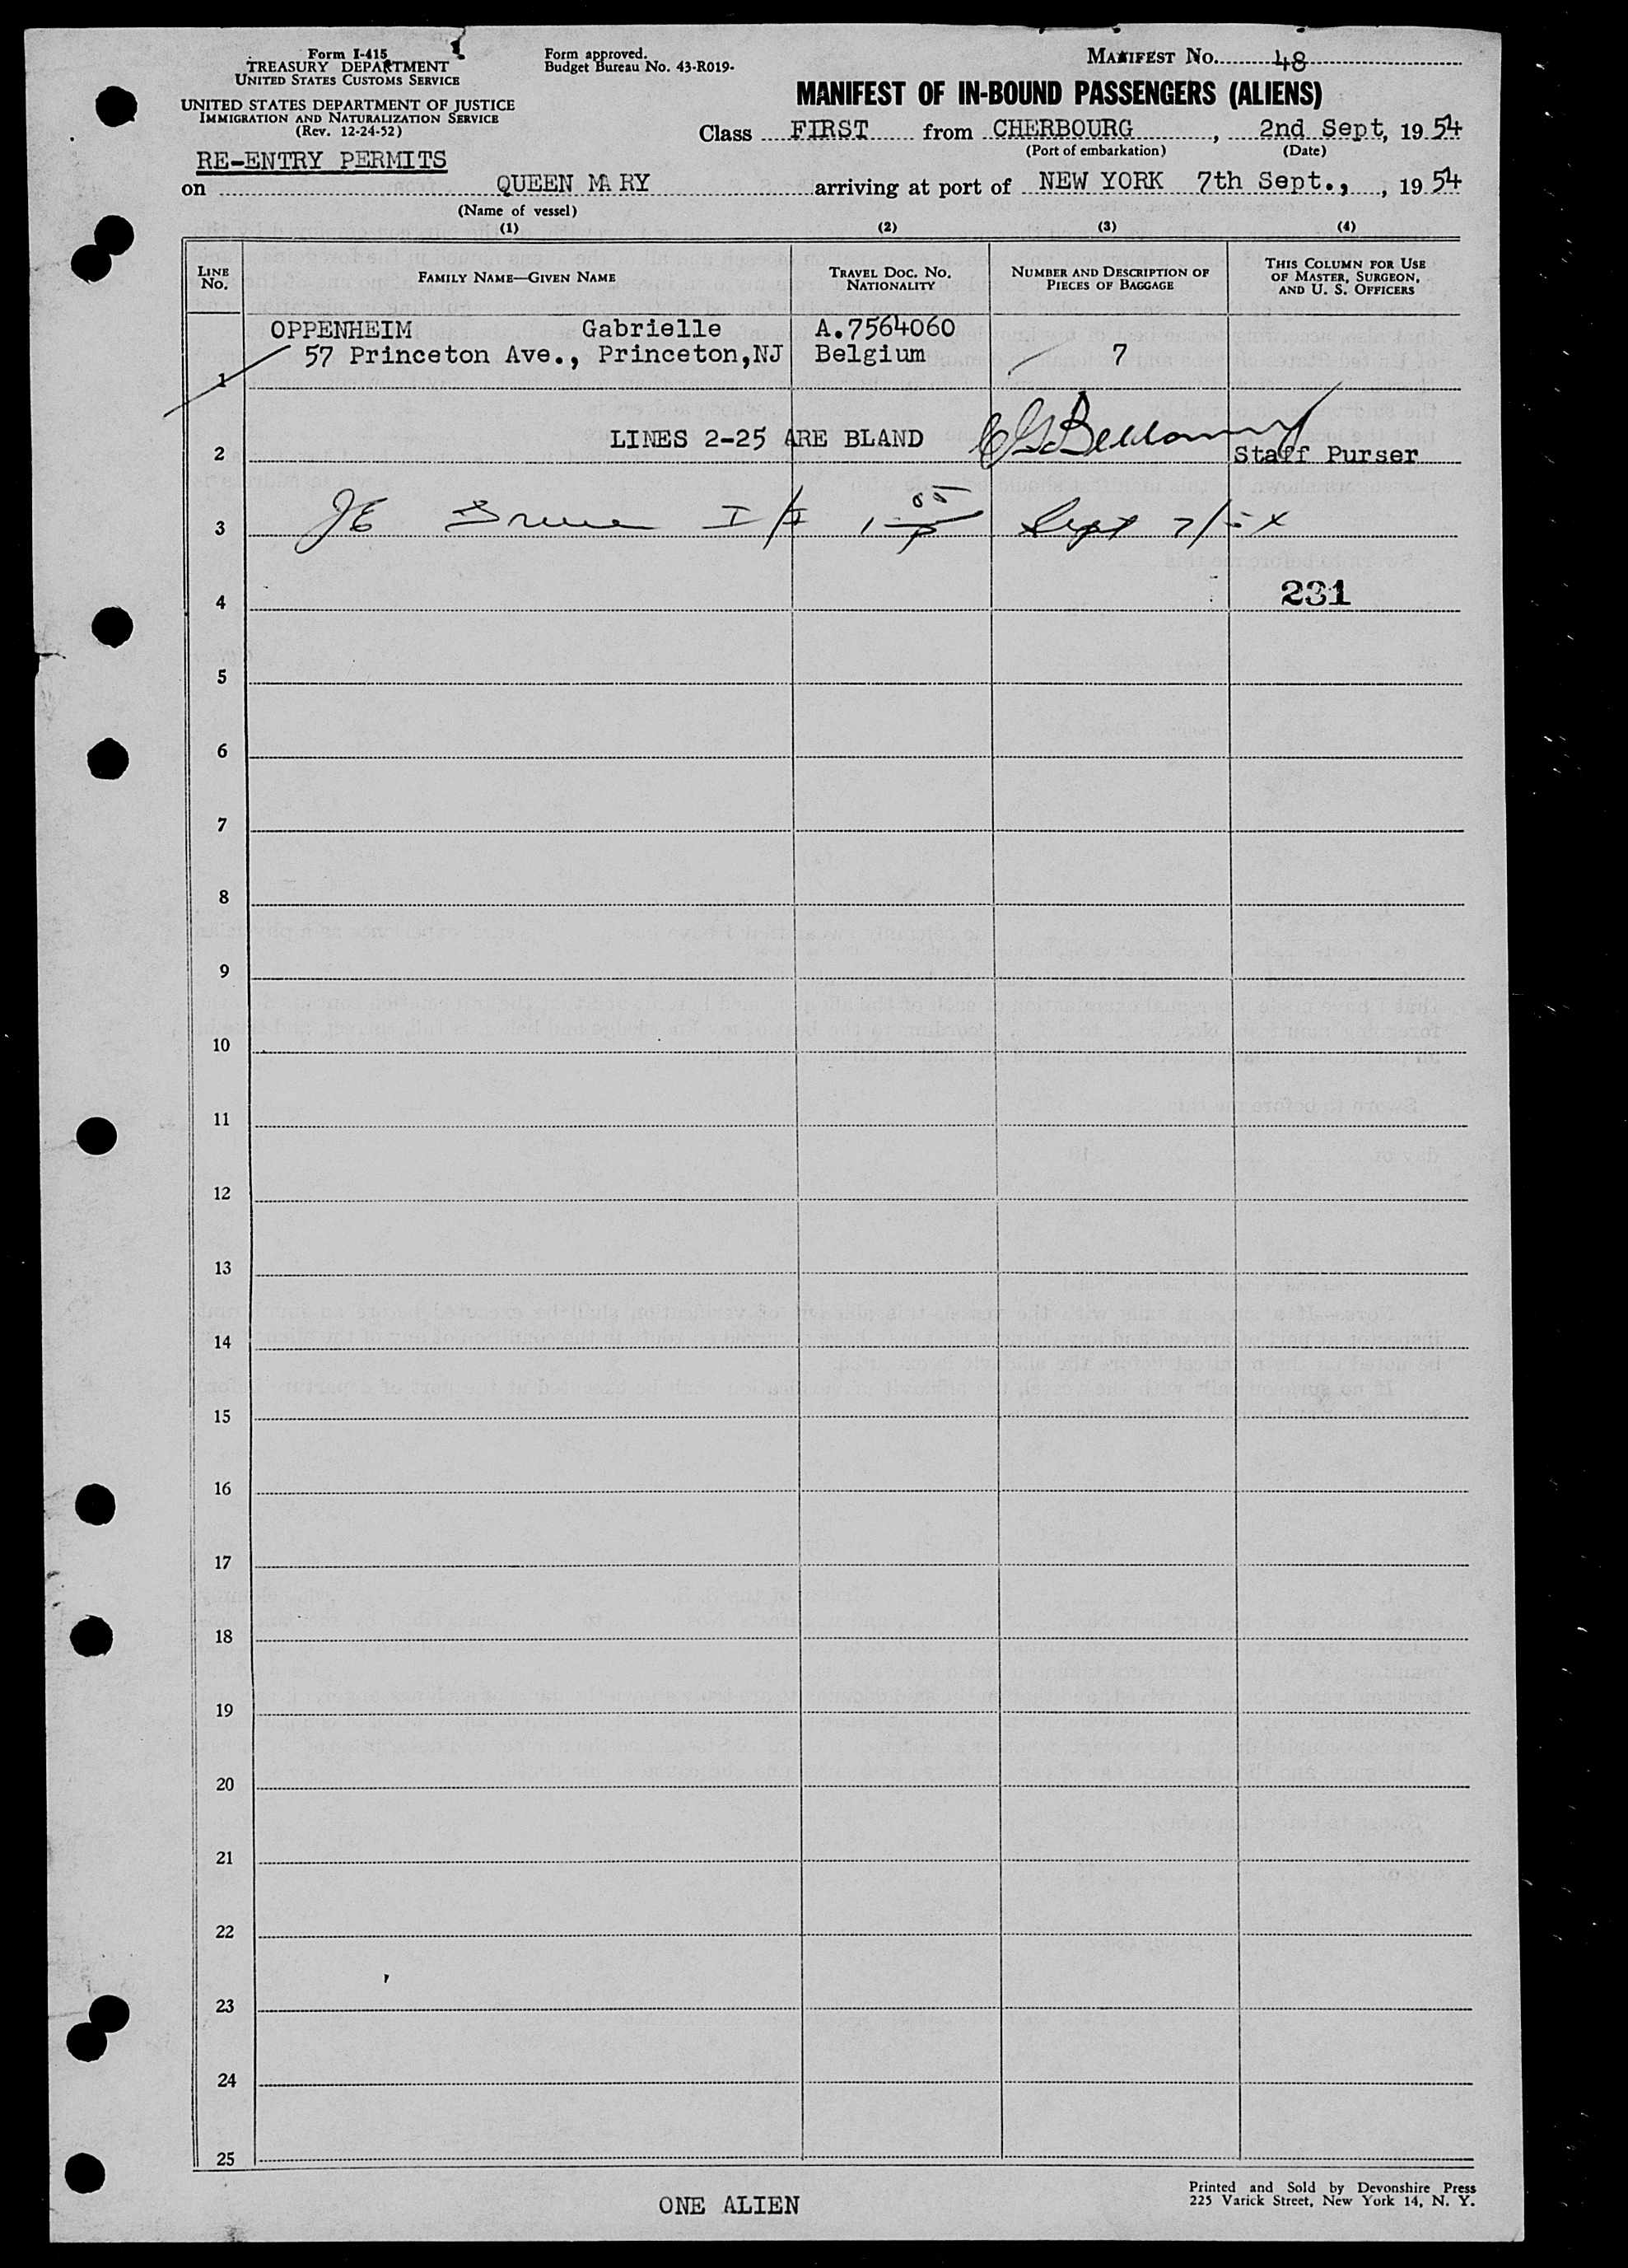 Form I-415
TREASURY DEPARTMENT
UNITED STATES CUSTOMS SERVICE
UNITED STATES DEPARTMENT OF JUSTICE
IMMIGRATION AND NATURALIZATION SERVICE
(Rev. 12-24-52)
Form approved.
Budget Bureau No. 43-R019-
MANIFEST No. 48
MANIFEST OF IN-BOUND PASSENGERS (ALIENS)
Class FIRST from CHERBOURG, 2nd Sept, 1954
(Port of embarkation) (Date)
RE-ENTRY PERMITS
on QUEEN MARY arriving at port of NEW YORK 7th Sept., , 1954
(Name of vessel)
(1) (2) (3) (4)
LINE No. FAMILY NAME—GIVEN NAME TRAVEL DOC. No. NATIONALITY NUMBER AND DESCRIPTION OF PIECES OF BAGGAGE THIS COLUMN FOR USE OF MASTER, SURGEON, AND U. S. OFFICERS
OPPENHEIM Gabrielle A.7564060
57 Princeton Ave., Princeton,NJ Belgium 7
1
LINES 2-25 ARE BLAND
2 Staff Purser
3 Sept 7/54
231
4
5
6
7
8
9
10
11
12
13
14
15
16
17
18
19
20
21
22
23
24
25
ONE ALIEN
Printed and Sold by Devonshire Press
225 Varick Street, New York 14, N. Y.